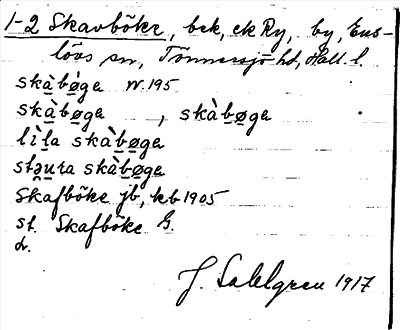 1-2 Skavböke, bek, ek Ry, by, Ens-
lövs sn, Tönnersjö hd, Hall. l.
skà̱bø̱ge W. 195
skà̱bø̱ge , skà̱bø̱ge
lìla skà̱bø̱ge
stæuta skà̱bø̱ge
Skafböke jb, kb 1905
st. Skafböke G.
L.
J. Sahlgren 1917